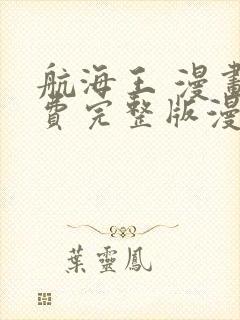 航海王 漫畫
費完整版漫
葉靈鳳